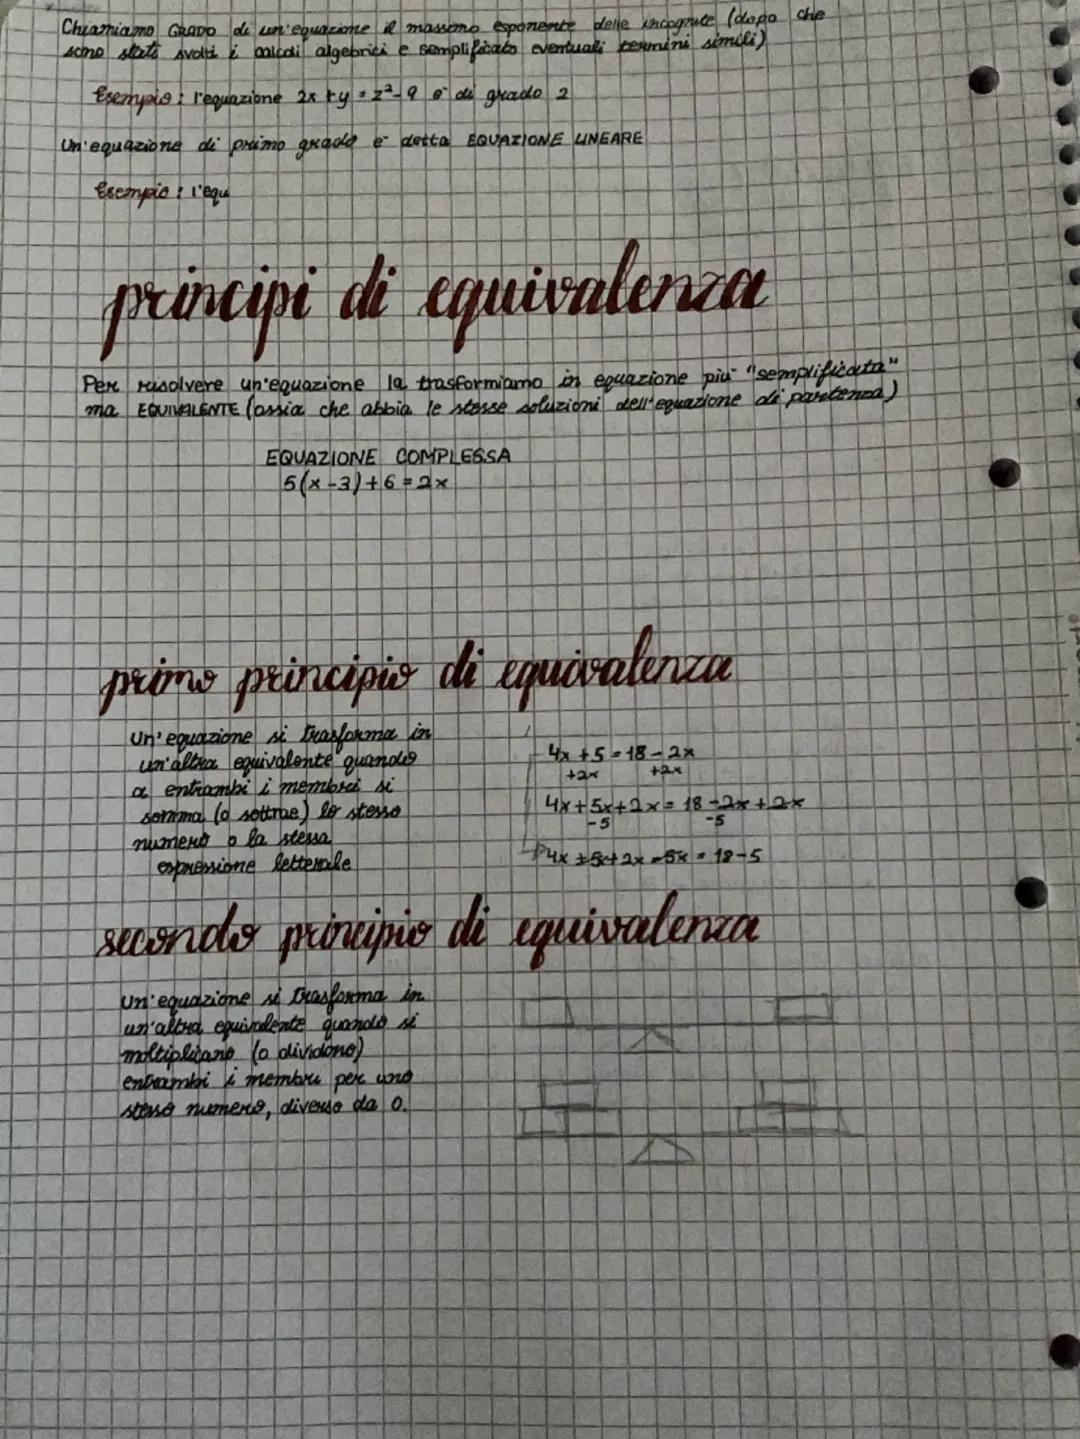 Chiamiamo GRADO di un'equazione il massimo esponente delle incognite (dopo che
sono stati svolti i calcoli algebrici e semplificato eventuali termini simili)
Esempio: l'equazione 2x + y = z²-9 è di grado 2
Un'equazione di primo grado è detta EQUAZIONE LINEARE
Esempio: l'equ
principi di equivalenza
Per risolvere un'equazione la trasformiamo in equazione più "semplificata"
ma EQUIVALENTE (ossia che abbia le stesse soluzioni dell'equazione di partenza)
EQUAZIONE COMPLESSA
5(x-3)+6=2x
primo principio di equivalenza
un'equazione si trasforma in
un'altra equivalente quando
a entrambi i membri si
somma (o sottrae) lo stesso
numero o la stessa
espressione letterale
4x +5 = 18 - 2x
+2x +2x
4x+5x+2x = 18-2x+2x
-5 -5
4x+5x+2x-5x = 18-5
secondo principio di equivalenza
un'equazione si trasforma in
un'altra equivalente quando si
moltiplicano (o dividono)
entrambi i membri per uno
stesso numero, diverso da 0.